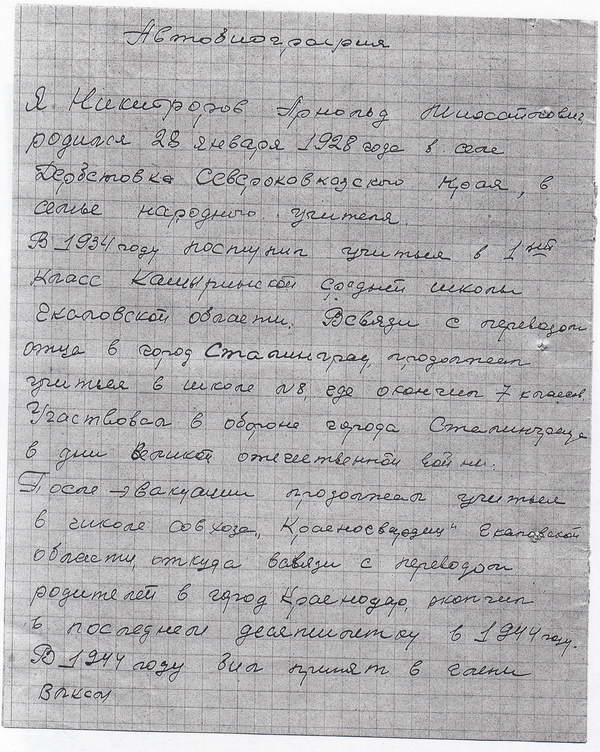 Автобиография
Я Никифоров Арнольд
родился 28 января 1928 года в селе
Дербетовка Северокавказского Края, в
семье народного учителя.
В 1934 году поступил учиться в 1ый
класс Кашыринской средней школы
Чкаловской области. Всвязи с переводом
отца в город Сталинград, продолжал
учиться в школе №8, где окончил 7 классов
Участвовал в обороне города Сталинграда
в дни Великой отечественной войны.
После эвакуации продолжал учиться
в школе совхоза „Красногвардеец" Чкаловской
области, откуда всвязи с переводом
родителей в город Краснодар, окончил
в последнем десятилетку в 1944 году.
В 1944 году был принят в члены
ВЛКСМ